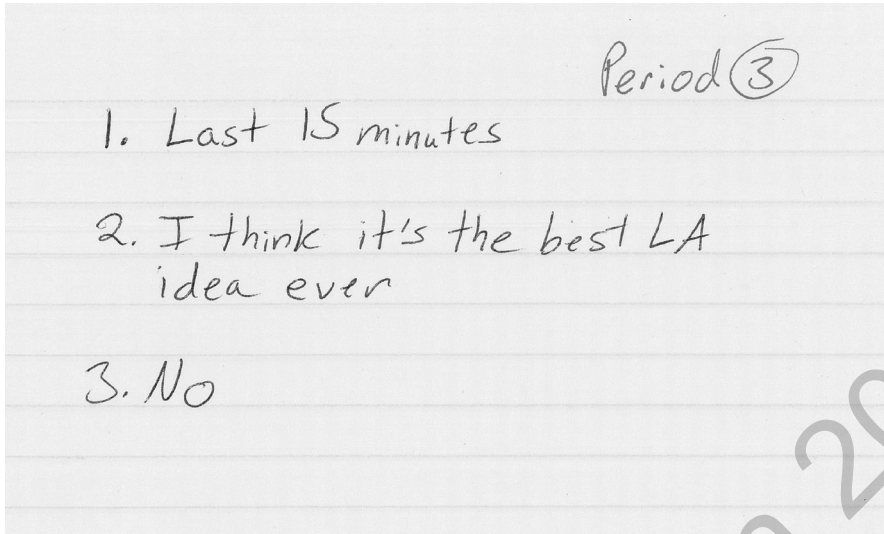 Period 3
1. Last 15 minutes
2. I think it's the best LA
idea ever
3. No